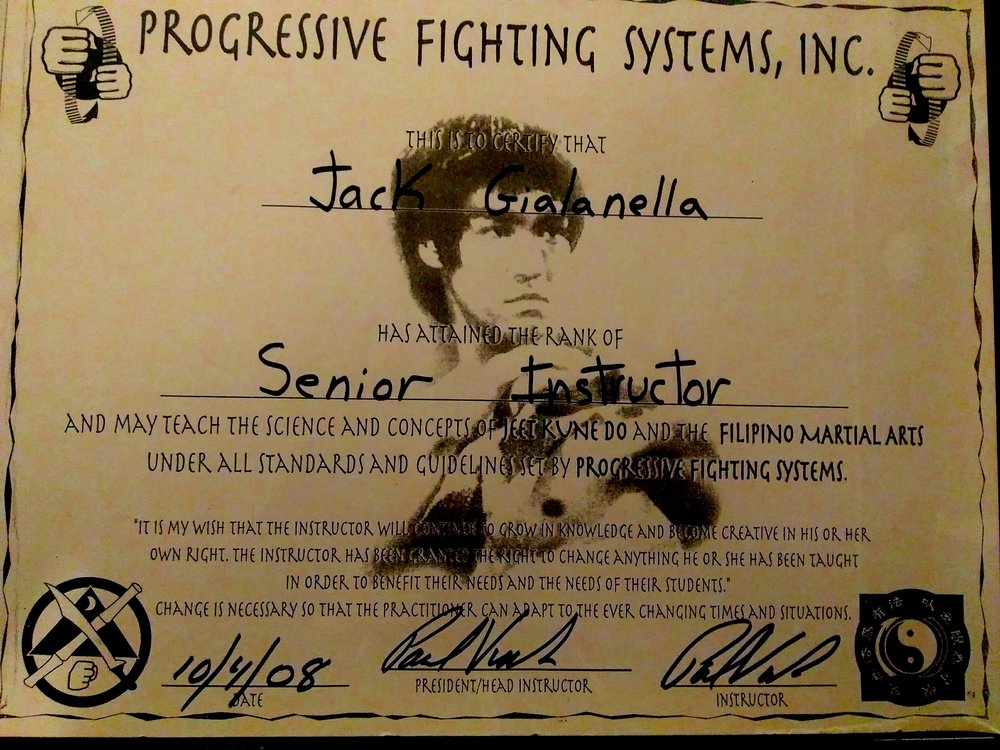 PROGRESSIVE FIGHTING SYSTEMS, INC.
THIS IS TO CERTIFY THAT
Jack Gialanella
HAS ATTAINED THE RANK OF
Senior Instructor
AND MAY TEACH THE SCIENCE AND CONCEPTS OF JEET KUNE DO AND THE FILIPINO MARTIAL ARTS
UNDER ALL STANDARDS AND GUIDELINES SET BY PROGRESSIVE FIGHTING SYSTEMS.
"IT IS MY WISH THAT THE INSTRUCTOR WILL CONTINUE TO GROW IN KNOWLEDGE AND BECOME CREATIVE IN HIS OR HER
OWN RIGHT. THE INSTRUCTOR HAS BEEN GRANTED THE RIGHT TO CHANGE ANYTHING HE OR SHE HAS BEEN TAUGHT
IN ORDER TO BENEFIT THEIR NEEDS AND THE NEEDS OF THEIR STUDENTS."
CHANGE IS NECESSARY SO THAT THE PRACTITIONER CAN ADAPT TO THE EVER CHANGING TIMES AND SITUATIONS.
10/4/08
DATE
PRESIDENT/HEAD INSTRUCTOR
INSTRUCTOR